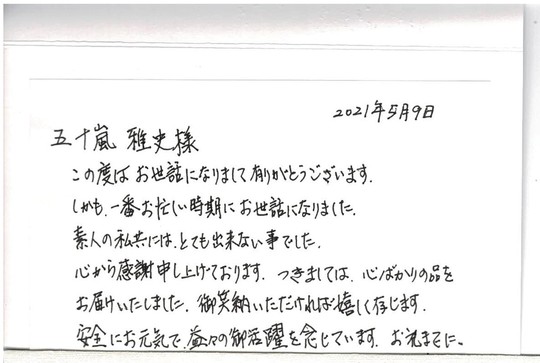 2021年5月9日
五十嵐 雅史様
この度は お世話になりまして有りがとうございます.
しかも、一番お忙しい時期に お世話になりました.
素人の私共には、とても出来ない事でした.
心から感謝申し上げております. つきましては、心ばかりの品を
お届けいたしました. 御笑納いただければ嬉しく存じます.
安全にお元気で、益々の御活躍を念じています. お礼までに.